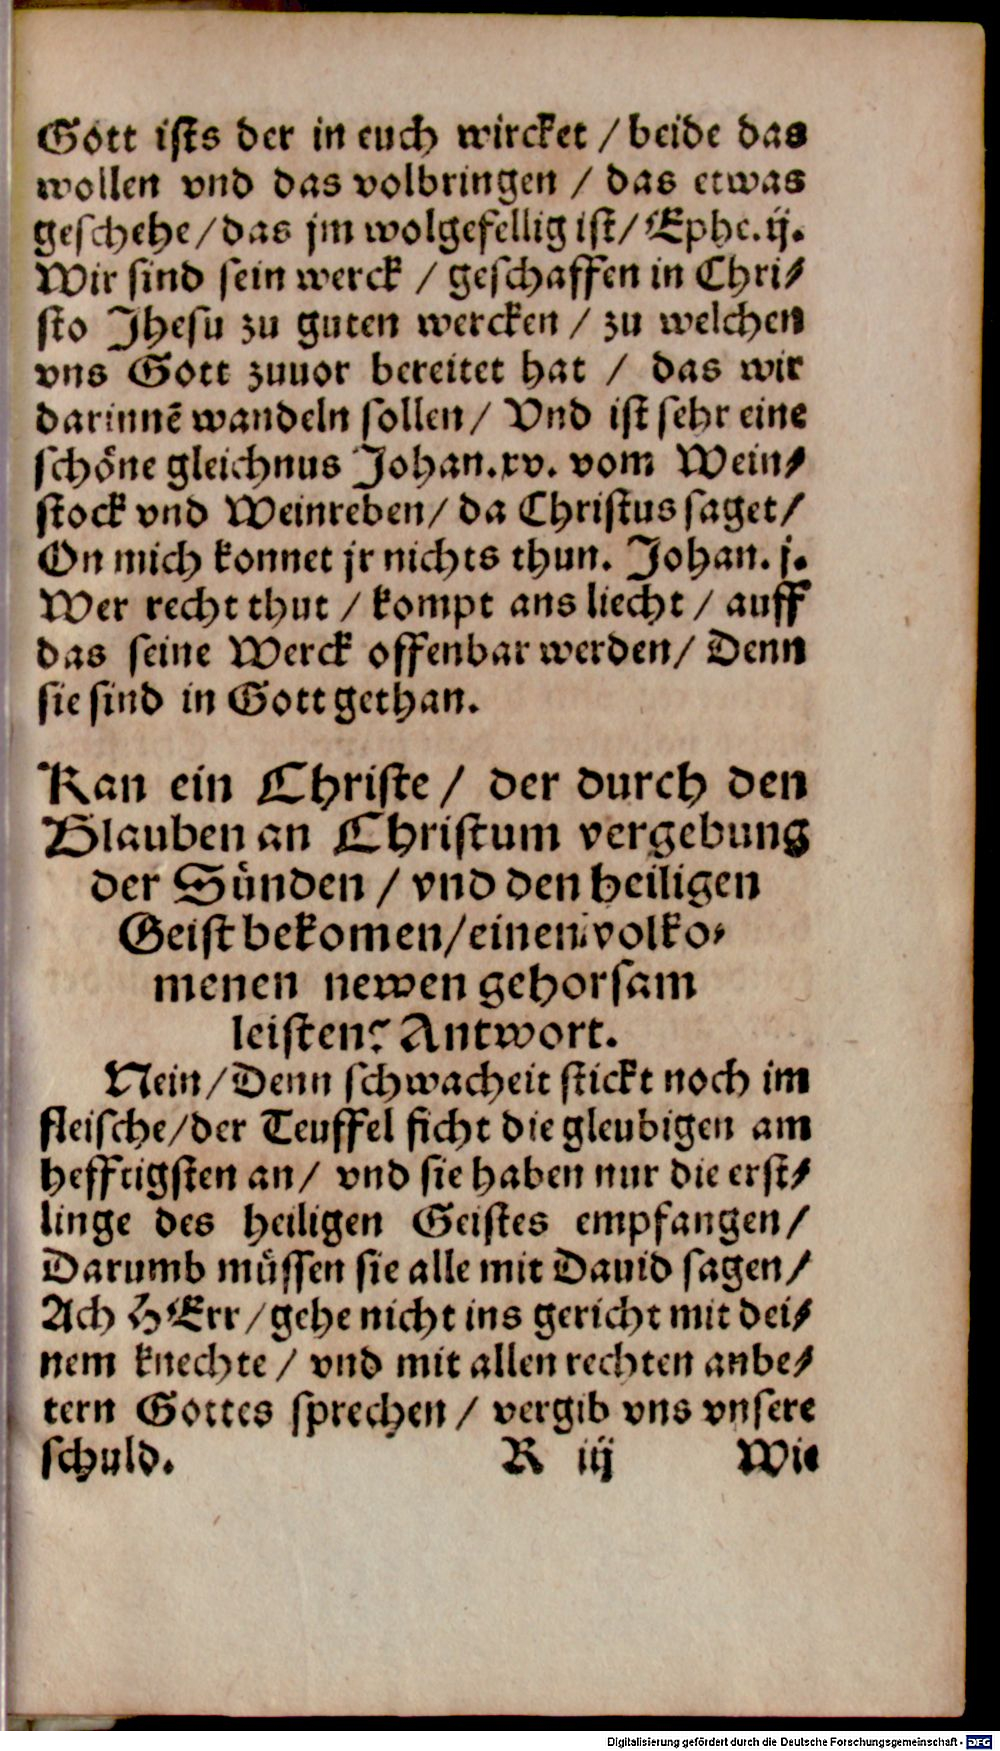 Gott ists der in euch wircket / beide das
wollen vnd das volbringen / das etwas
geschehe / das jm wolgefellig ist / Ephe. ij.
Wir sind sein werck / geschaffen in Chri⸗
sto Jhesu zu guten wercken / zu welchen
vns Gott zuuor bereitet hat / das wir
darinnē wandeln sollen / Vnd ist sehr eine
schöne gleichnus Johan. xv. vom Wein⸗
stock vnd Weinreben / da Christus saget /
On mich konnet jr nichts thun. Johan. j.
Wer recht thut / kompt ans liecht / auff
das seine Werck offenbar werden / Denn
sie sind in Gott gethan.
Kan ein Christe / der durch den
Glauben an Christum vergebung
der Sünden / vnd den heiligen
Geist bekomen / einen volko⸗
menen newen gehorsam
leisten? Antwort.
Nein / Denn schwacheit stickt noch im
fleische / der Teuffel ficht die gleubigen am
hefftigsten an / vnd sie haben nur die erst⸗
linge des heiligen Geistes empfangen /
Darumb müssen sie alle mit Dauid sagen /
Ach HErr / gehe nicht ins gericht mit dei⸗
nem knechte / vnd mit allen rechten anbe⸗
tern Gottes sprechen / vergib vns vnsere
schuld. R iij Wie
Digitalisierung gefördert durch die Deutsche Forschungsgemeinschaft - DFG